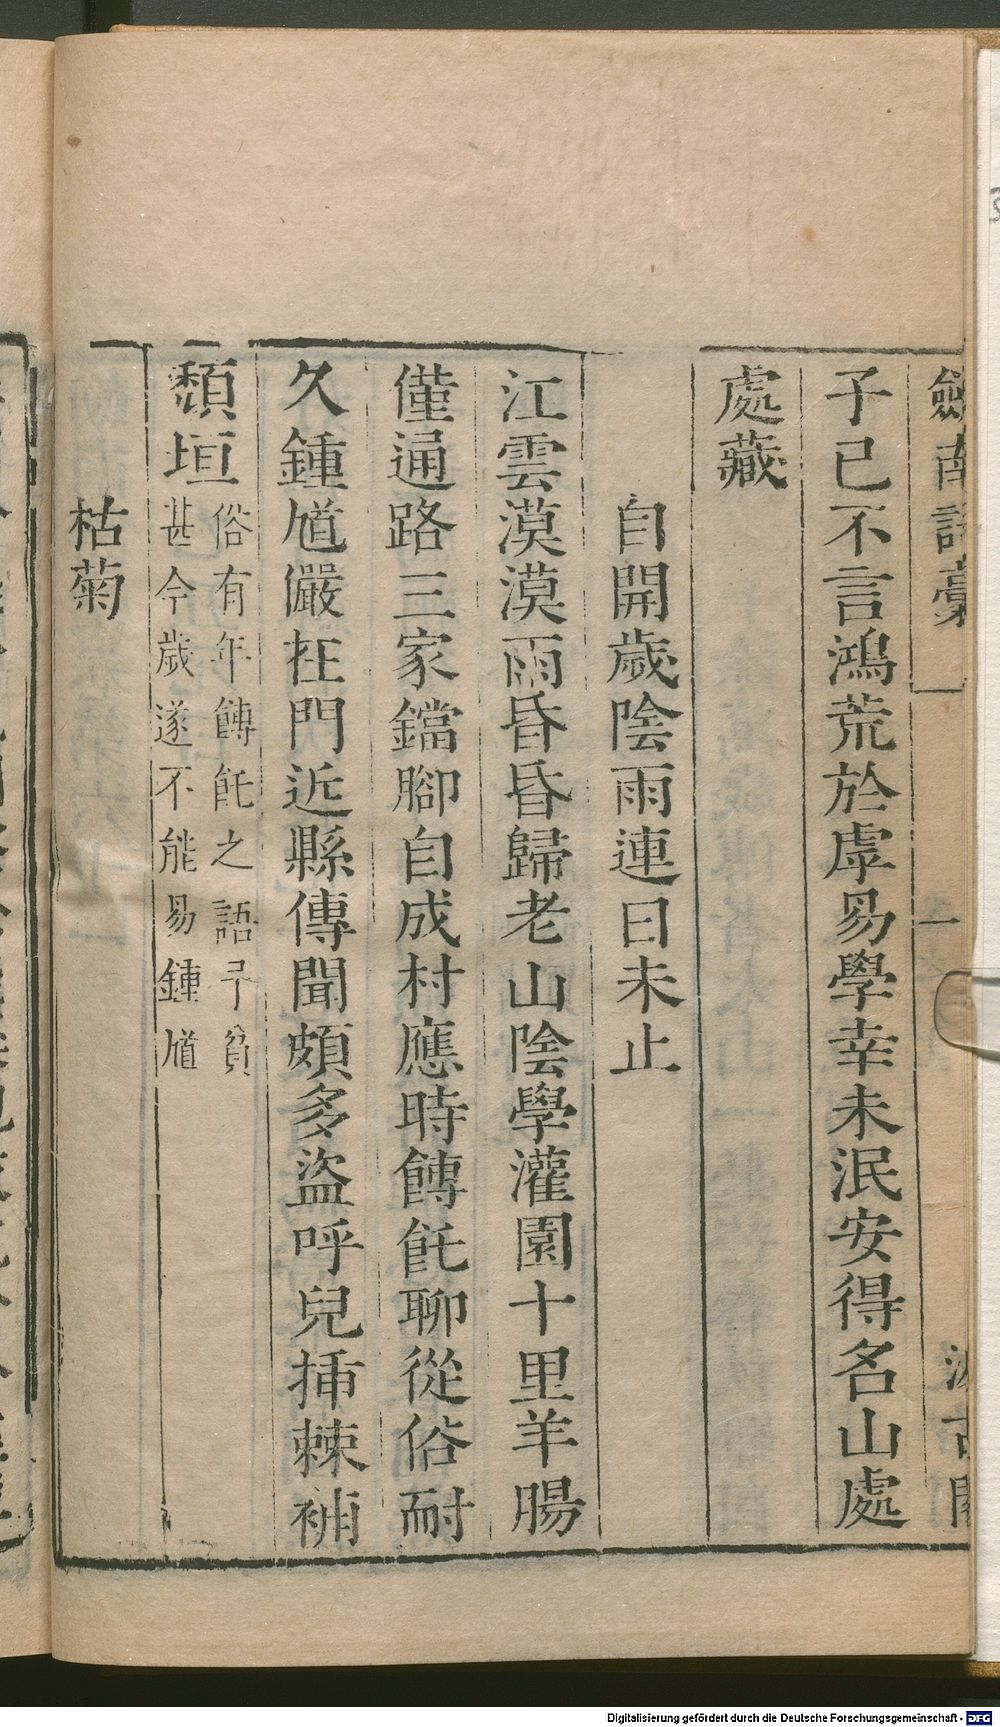 劍南詩藁
一
汲古閣
子已不言鴻荒於虖易學幸未泯安得名山處
處藏
自開歲陰雨連日未止
江雲漠漠雨昏昏歸老山陰學灌園十里羊腸
僅通路三家鐺腳自成村應時餺飥聊從俗耐
久鍾馗儼在門近縣傳聞頗多盜呼兒插棘補
頹垣
俗有年餺飥之語予貧
甚今歲遂不能易鍾馗
枯菊
Digitalisierung gefördert durch die Deutsche Forschungsgemeinschaft - DFG